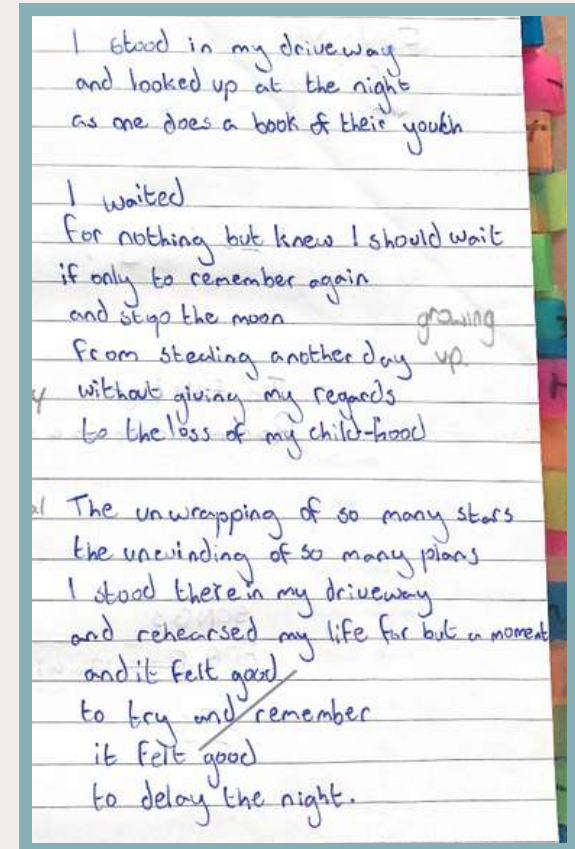 I stood in my driveway
and looked up at the night
as one does a book of their youth
I waited
for nothing but knew I should wait
if only to remember again
and stop the moon
from stealing another day
growing
up.
without giving my regards
to the loss of my child-hood
The unwrapping of so many stars
the unwinding of so many plans
I stood there in my driveway
and rehearsed my life for but a moment
and it felt good
to try and remember
it felt good
to delay the night.